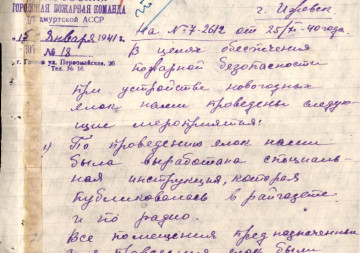 ГОРОДСКАЯ ПОЖАРНАЯ КОМАНДА
Удмуртской АССР
г. Ижевск
"13" Января 1941 г.
№ 18
Первомайская, 26
Тел. № 16.
На № 7-2612 от 25/XII-40 года.
В целях обеспечения
пожарной безопасности
при устройстве новогодних
елок нами проведены следую-
щие мероприятия:
1) По проведению елок нами
была выработана специаль-
ная инструкция, которая
публиковалась в райгазете
и по радио.
Все помещения предназначенные
для проведения елок были